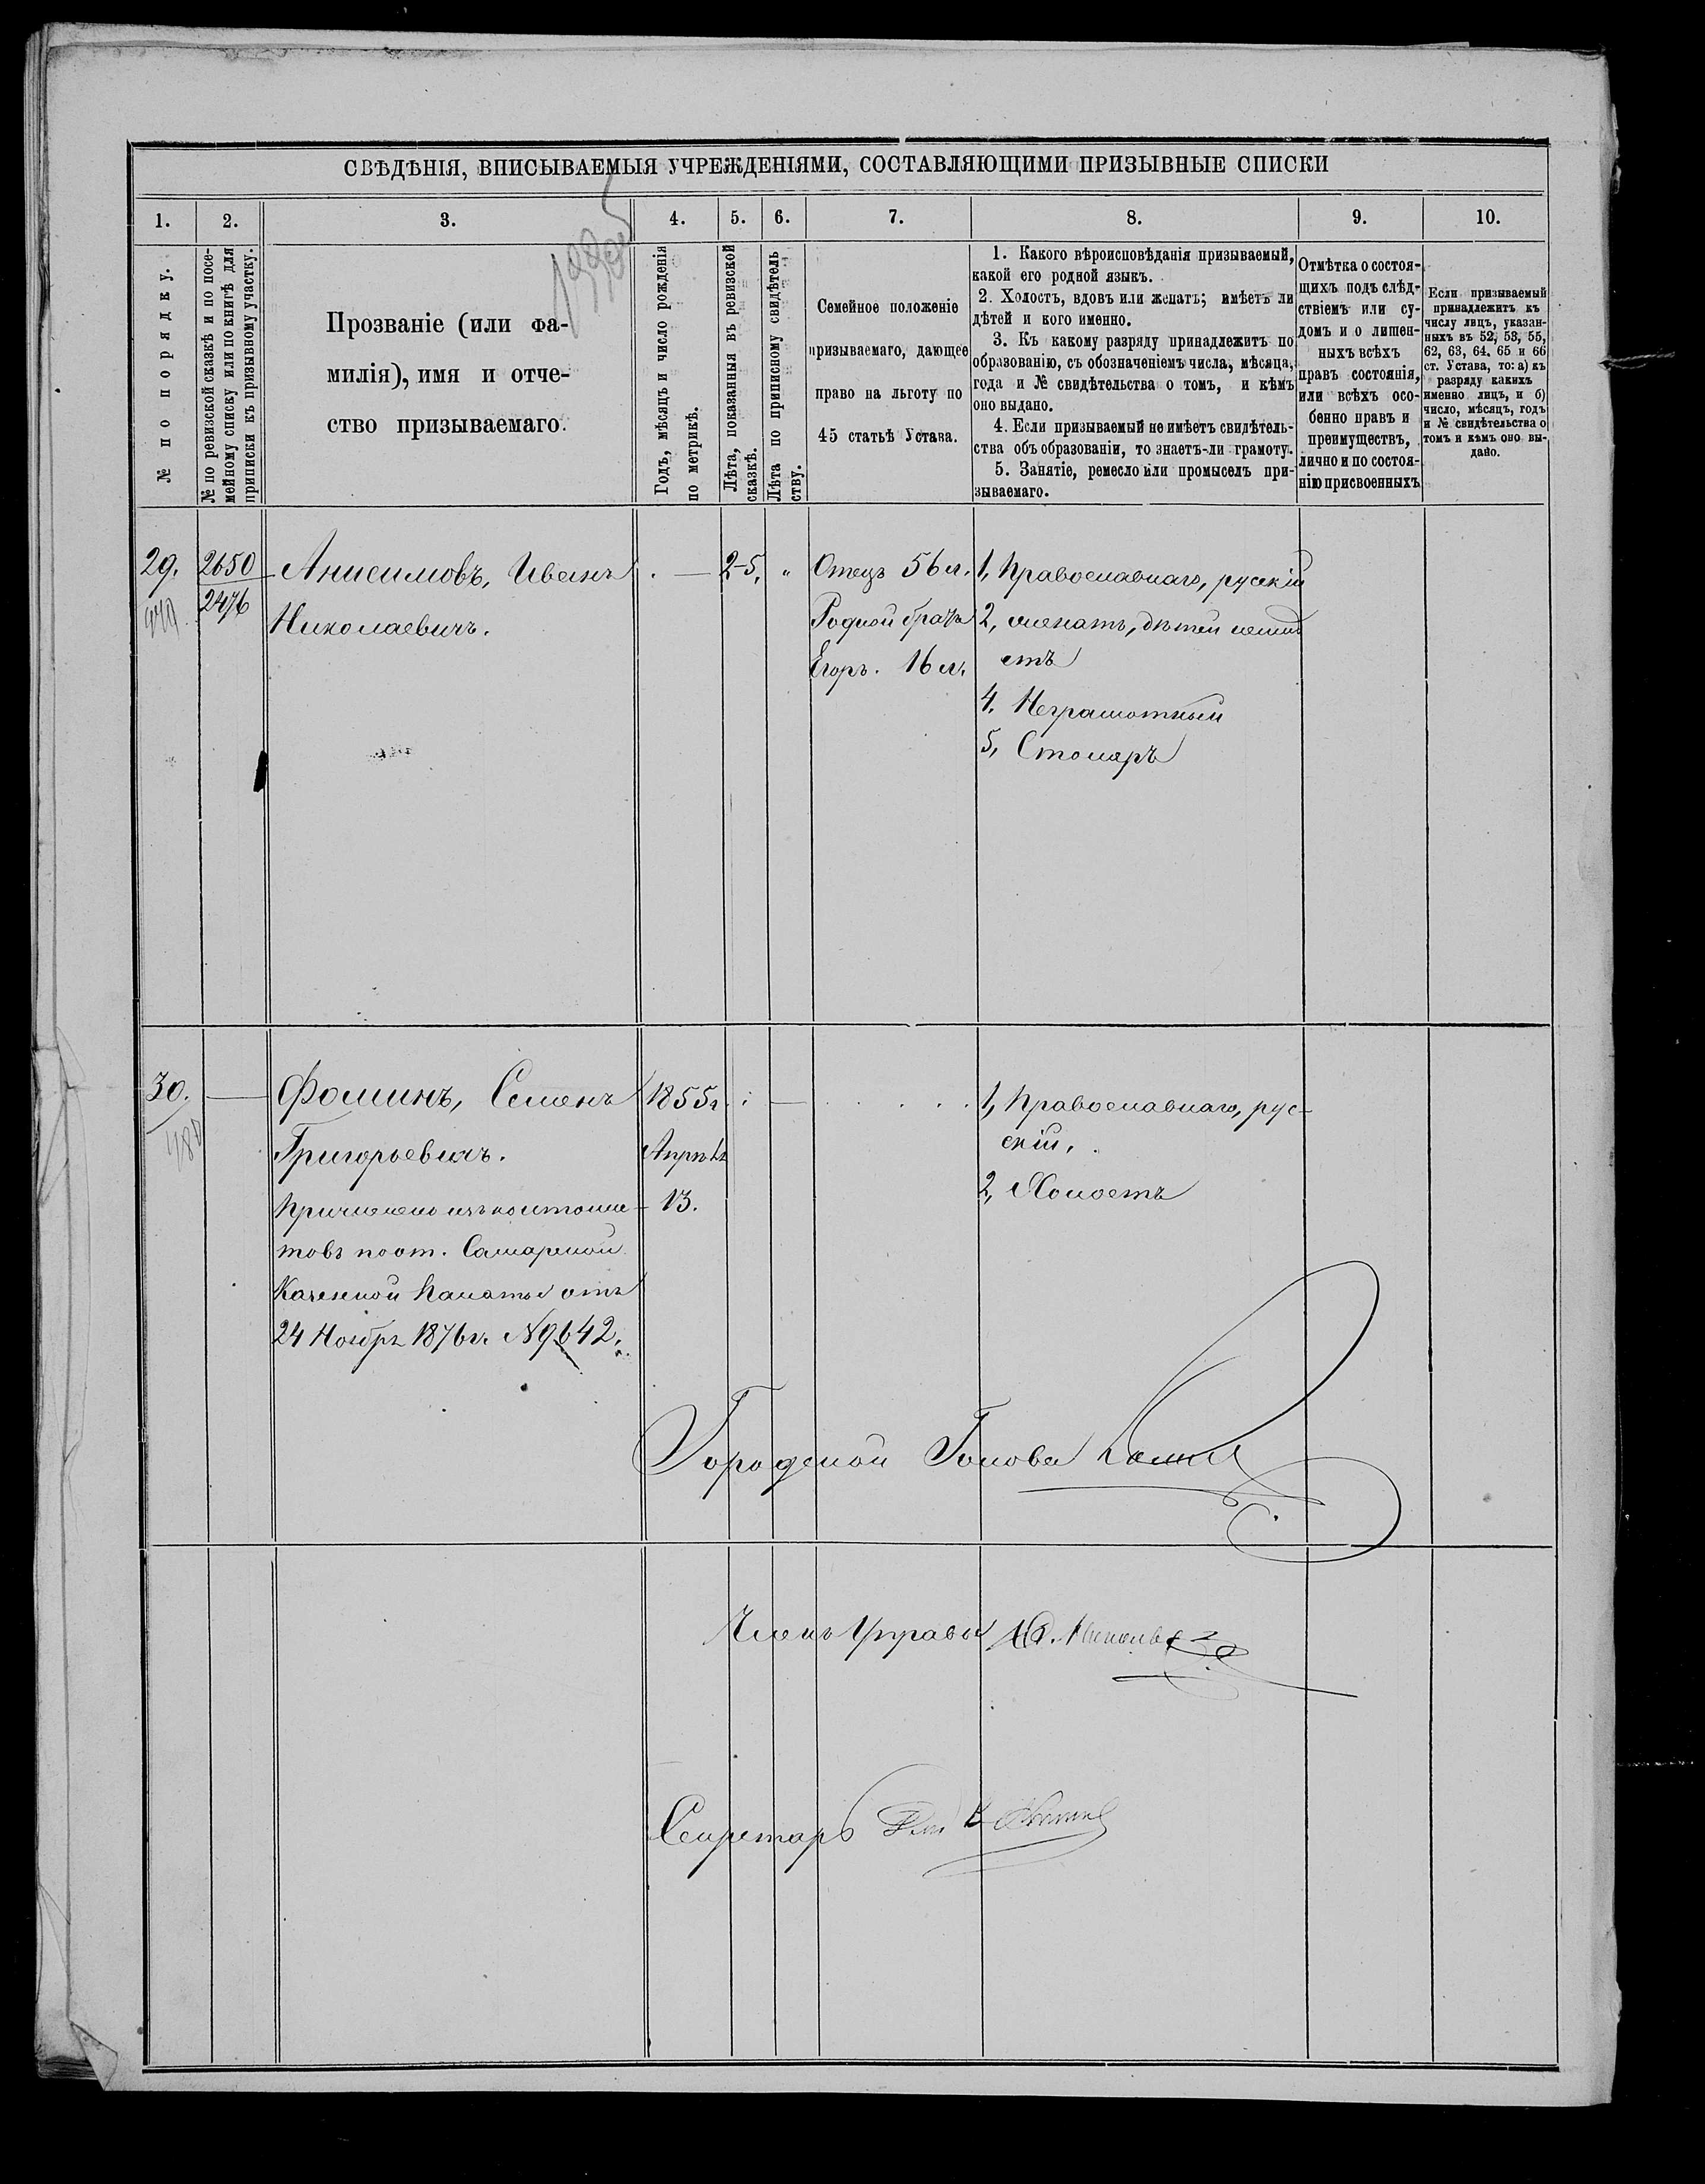 СВѢДѢНІЯ, ВПИСЫВАЕМЫЯ УЧРЕЖДЕНІЯМИ, СОСТАВЛЯЮЩИМИ ПРИЗЫВНЫЕ СПИСКИ
1. 2. 3. 4. 5. 6. 7. 8. 9. 10.
№ по порядку.
№ по ревизской сказкѣ и по посе-
мейному списку или по книгѣ для
приписки къ призывному участку.
Прозваніе (или фа-
милія), имя и отче-
ство призываемаго.
Годъ, мѣсяцъ и число рожденія
по метрикѣ.
Лѣта, показанныя въ ревизской
сказкѣ.
Лѣта по приписному свидѣтель
ству.
Семейное положеніе
призываемаго, дающее
право на льготу по
45 статьѣ Устава.
1. Какого вѣроисповѣданія призываемый,
какой его родной языкъ.
2. Холостъ, вдовъ или женатъ; имѣетъ ли
дѣтей и кого именно.
3. Къ какому разряду принадлежитъ по
образованію, съ обозначеніемъ числа, мѣсяца,
года и № свидѣтельства о томъ, и кѣмъ
оно выдано.
4. Если призываемый не имѣетъ свидѣтель-
ства объ образованіи, то знаетъ-ли грамоту.
5. Занятіе, ремесло или промыселъ при-
зываемаго.
Отмѣтка о состоя-
щихъ подъ слѣд-
ствіемъ или су-
домъ и о лишен-
ныхъ всѣхъ
правъ состоянія,
или всѣхъ осо-
бенно правъ и
преимуществъ,
лично и по состоя-
нію присвоенныхъ
Если призываемый
принадлежитъ къ
числу лицъ, указан-
ныхъ въ 52, 53, 55,
62, 63, 64. 65 и 66
ст. Устава, то: а) къ
разряду какихъ
именно лицъ, и б)
число, мѣсяцъ, годъ
и № свидѣтельства о
томъ и кѣмъ оно вы-
дано.
29.
2650
2476
Анисимовъ, Иванъ
Николаевичъ.
2-5.
Отецъ 56 л.
Родной братъ
Егоръ. 16 л.
1, Православнаго, русскій
2, женатъ, дѣтей неимѣ
етъ
4. Неграмотный
5, Столяръ
30.
Фоминъ, Семенъ
Григорьевичъ.
Причислено изъ кантонис
товъ по от. Самарской
Казенной Палаты отъ
24 Ноябр. 1876 г. № 9642.
1855 г.
Апрѣля
13.
1, Православнаго, рус-
скій.
2, Холостъ
Городской Голова
Членъ Управы
Секретарь